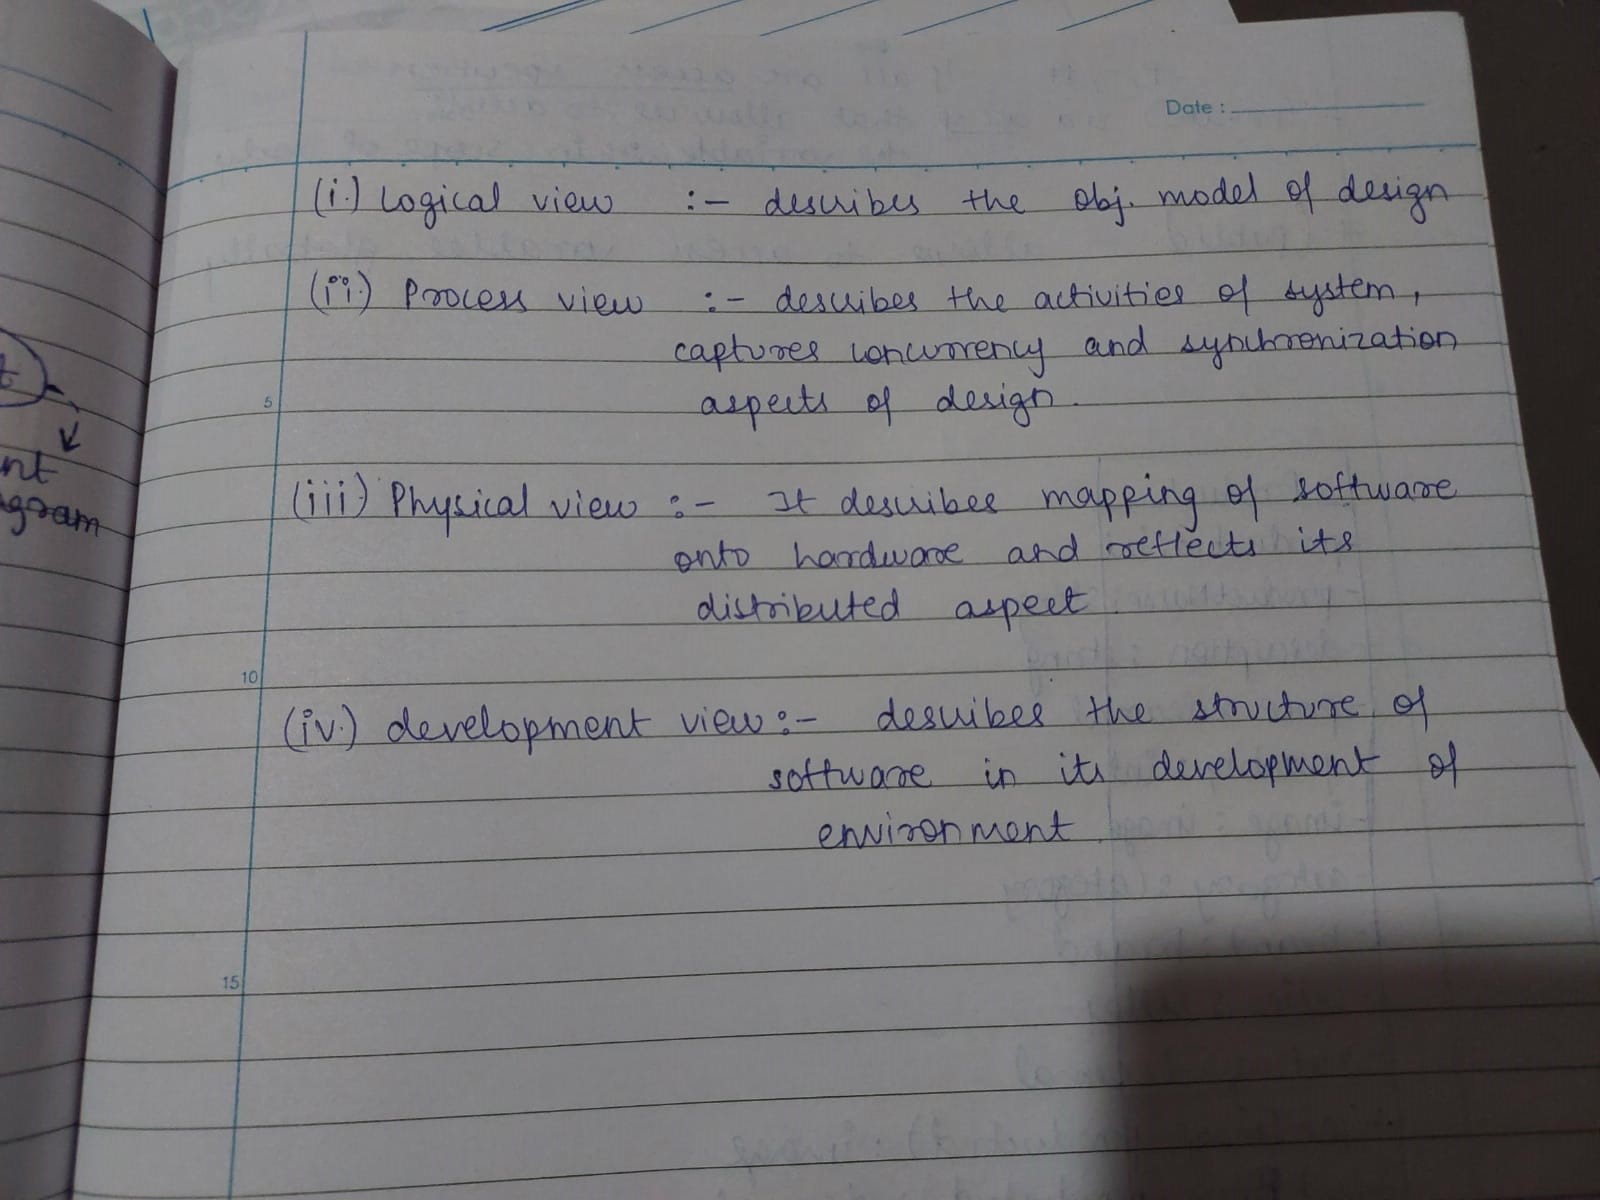 Date :
(i.) Logical view :- describes the obj. model of design
(ii.) Process view :- describes the activities of system,
captures concurrency and synchronization
5
aspects of design.
(iii.) Physical view :- It describes mapping of software
onto hardware and reflects its
distributed aspect.
10
(iv.) development view :- describes the structure of
software in its development of
environment
15
nt
gram